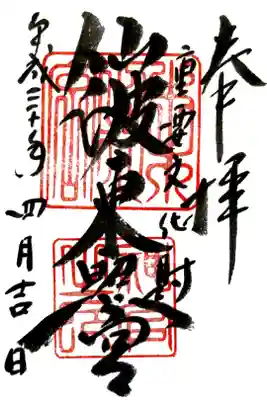 奉拝
重要文化財
仙波東照宮
平成三十年四月吉日